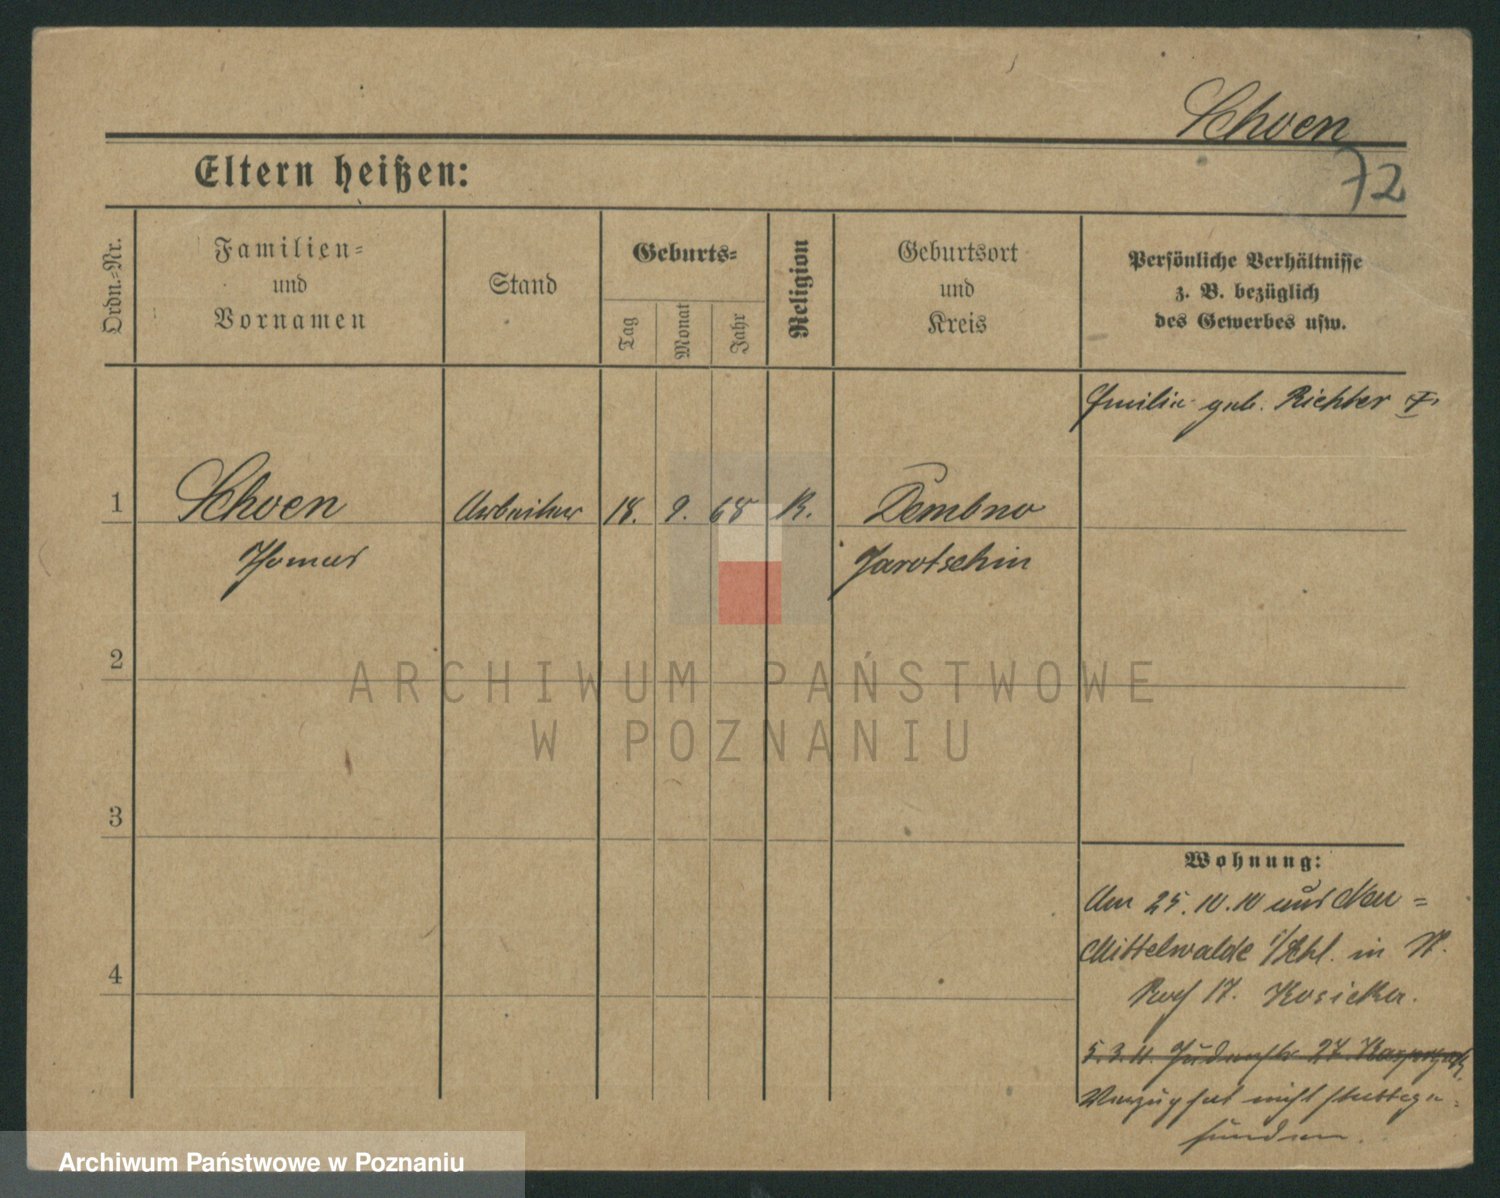 Schoen
72
Eltern heißen:
Ordn.-Nr.
Familien-
und
Vornamen
Stand
Geburts-
Tag
Monat
Jahr
Religion
Geburtsort
und
Kreis
Persönliche Verhältnisse
z. B. bezüglich
des Gewerbes usw.
geb. Richter
1
Schoen
Arbeiter
18.
9.
68
K.
Dembno
Thomas
Jarotschin
2
3
4
Wohnung:
Am 25.10.10 aus Neu=
Mittelwalde i/Schl. in St.
Roch 17.
5.3.11. Judenstr. 27
Umzug hat nicht stattge-
funden.
ARCHIWUM PAŃSTWOWE
W POZNANIU
Archiwum Państwowe w Poznaniu